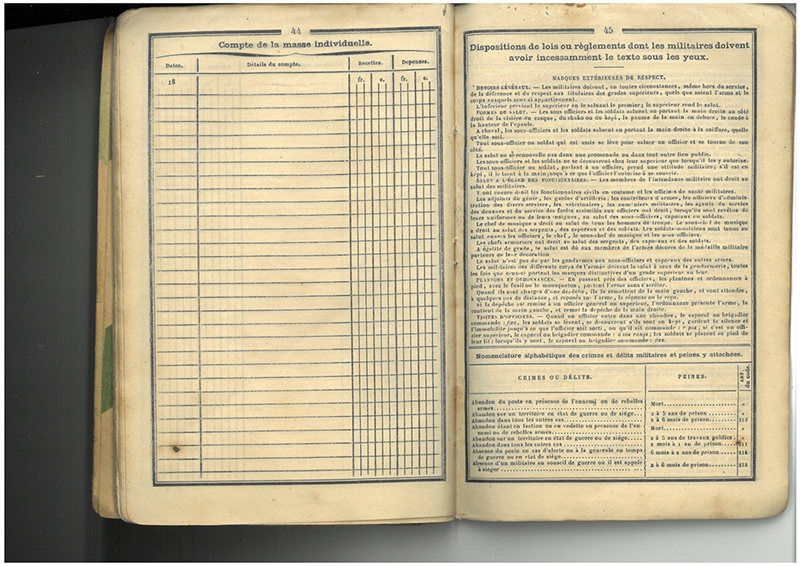 44
Compte de la masse individuelle.
Dates.
Détails du compte.
Recettes.
Dépenses.
fr. c. fr. c.
18
45
Dispositions de lois ou règlements dont les militaires doivent
avoir incessamment le texte sous les yeux.
MARQUES EXTÉRIEURES DE RESPECT.
DEVOIRS GÉNÉRAUX. — Les militaires doivent, en toutes circonstances, même hors du service,
de la déférence et du respect aux titulaires des grades supérieurs, quels que soient l'arme et le
corps auxquels ceux-ci appartiennent.
L'inférieur prévient le supérieur en le saluant le premier; le supérieur rend le salut.
FORMES DU SALUT. — Les sous officiers et les soldats saluent en portant la main droite au côté
droit de la visière du casque, du shako ou du képi, la paume de la main en dehors, le coude à
la hauteur de l'épaule.
A cheval, les sous-officiers et les soldats saluent en portant la main droite à la coiffure, quelle
qu'elle soit.
Tout sous-officier ou soldat qui est assis se lève pour saluer un officier et se tourne de son
côté.
Le salut ne se renouvelle pas dans une promenade ou dans tout autre lieu public.
Les sous officiers et les soldats ne se découvrent chez leur supérieur que lorsqu'il les y autorise.
Tout sous-officier ou soldat, parlant à un officier, prend une attitude militaire; s'il est en
képi, il le tient à la main jusqu'à ce que l'officier l'autorise à se couvrir.
SALUT A L'ÉGARD DES FONCTIONNAIRES. — Les membres de l'intendance militaire ont droit au
salut des militaires.
Y ont encore droit les fonctionnaires civils en costume et les officiers de santé militaires.
Les adjoints du génie, les gardes d'artillerie, les contrôleurs d'armes, les officiers d'adminis-
tration des divers services, les vétérinaires, les aumôniers militaires, les agents du service
des douanes et du service des forêts assimilés aux officiers ont droit, lorsqu'ils sont revêtus de
leurs uniformes ou de leurs insignes, au salut des sous-officiers, caporaux ou soldats.
Le chef de musique a droit au salut de tous les hommes de troupe. Le sous-chef de musique
a droit au salut des sergents, des caporaux et des soldats. Les soldats-musiciens sont tenus au
salut envers les officiers, le chef, le sous-chef de musique et les sous-officiers.
Les chefs armuriers ont droit au salut des sergents, des caporaux et des soldats.
A égalité de grade, le salut est dû aux membres de l'armée décorés de la médaille militaire
porteurs de leur décoration
Le salut n'est pas dû par les gendarmes aux sous-officiers et caporaux des autres armes.
Les militaires des différents corps de l'armée doivent le salut à ceux de la gendarmerie, toutes
les fois que ceux-ci portent les marques distinctives d'un grade supérieur au leur.
PLANTONS ET ORDONNANCES. — En passant près des officiers, les plantons et ordonnances à
pied, avec le fusil ou le mousqueton, portent l'arme sans s'arrêter.
Quand ils sont chargés d'une dépêche, ils la remettent de la main gauche, et vont attendre,
à quelques pas de distance, et reposés sur l'arme, la réponse ou le reçu.
Si la dépêche est remise à un officier général ou supérieur, l'ordonnance présente l'arme, la
contient de la main gauche, et remet la dépêche de la main droite.
VISITES D'OFFICIERS. — Quand un officier entre dans une chambre, le caporal ou brigadier
commande : fixe, les soldats se lèvent, se découvrent s'ils sont en képi, gardent le silence et
l'immobilité jusqu'à ce que l'officier soit sorti, ou qu'il ait commandé : repos; si c'est un offi-
cier supérieur, le caporal ou brigadier commande : à vos rangs; les soldats se placent au pied de
leur lit; lorsqu'ils y sont, le caporal ou brigadier commande : fixe.
Nomenclature alphabétique des crimes et délits militaires et peines y attachées.
CRIMES OU DÉLITS.
PEINES.
ART. du code.
Abandon du poste en présence de l'ennemi ou de rebelles
armés
Mort »
Abandon sur un territoire en état de guerre ou de siège 2 à 5 ans de prison »
Abandon dans tous les autres cas 2 à 6 mois de prison
Abandon étant en faction ou en vedette en présence de l'en-
nemi ou de rebelles armés. Mort
Abandon sur un territoire en état de guerre ou de siège. 2 à 5 ans de travaux publics »
Abandon dans tous les autres cas 2 mois à 1 an de prison 211
Absence du poste au cas d'alerte ou à la générale en temps
de guerre ou en état de siège 6 mois à 2 ans de prison 214
Absence d'un militaire au conseil de guerre où il est appelé
à siéger 2 à 6 mois de prison 215